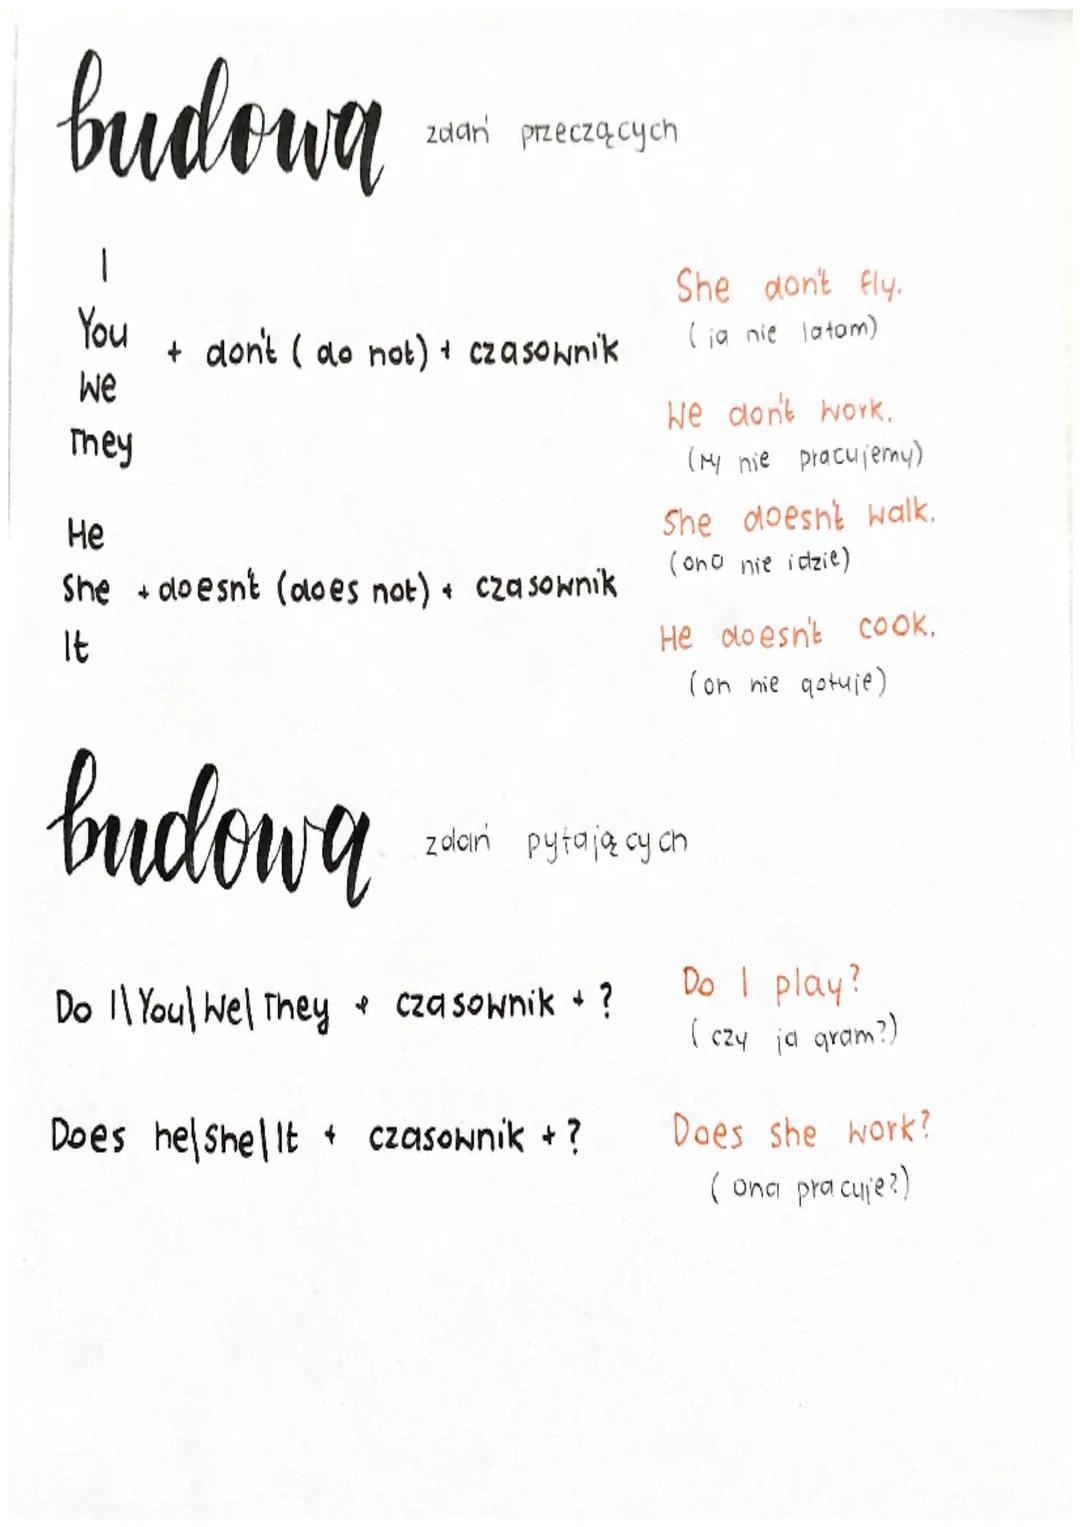 budowa zdań przeczących
I
You
We
They
+ don't (do not) + czasownik
She don't fly.
(ja nie latam)
We don't work.
(My nie pracujemy)
He
She
It
+ doesn't (does not) + czasownik
She doesn't walk.
(ona nie idzie)
He doesn't cook.
(on nie gotuje)
budowa zdań pytających
Do I\You\We\They + czasownik + ?
Do I play?
(czy ja gram?)
Does he\She\It + czasownik + ?
Does she work?
(ona pracuje?)